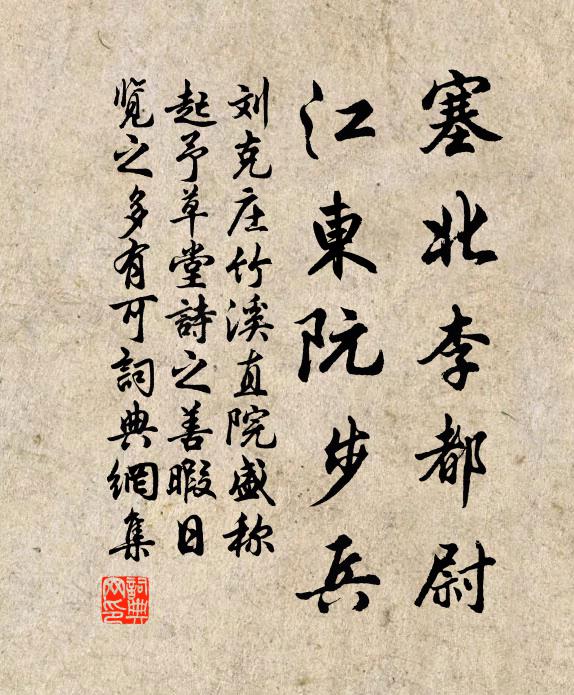 塞北李都尉
江東阮步兵
刘克庄竹溪直院盛称
起予草堂詩之善暇日
览之多有可詞典網集
詞典網印